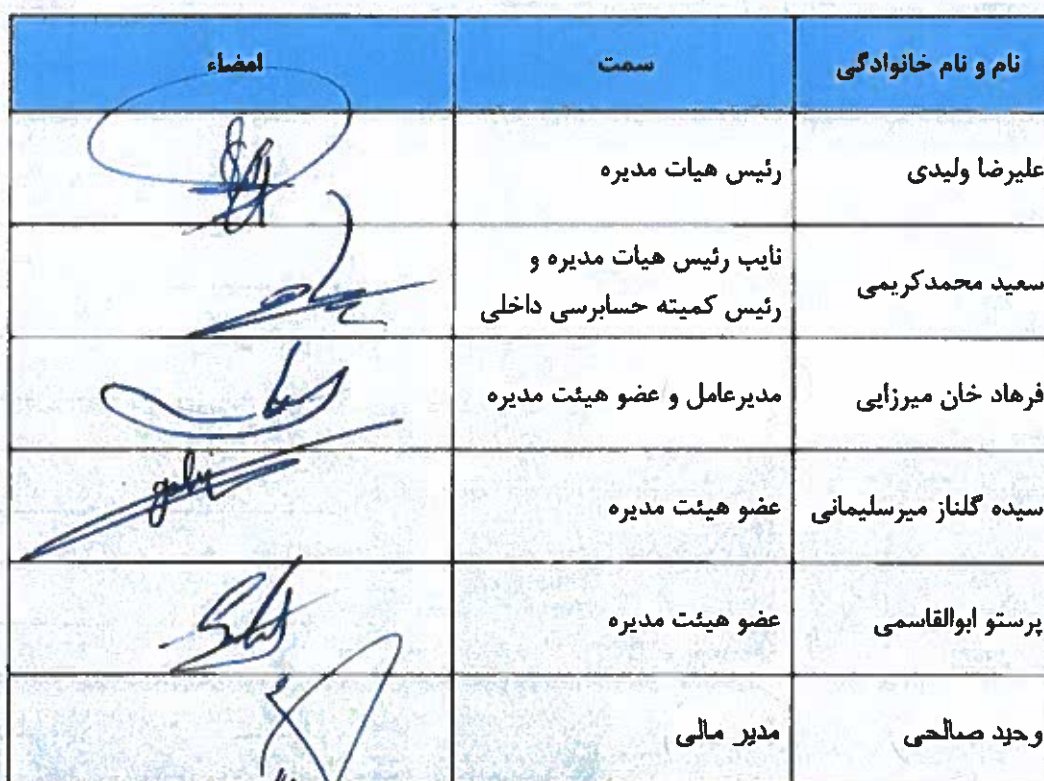 نام و نام خانوادگی سمت امضاء
علیرضا ولیدی رئیس هیات مدیره
سعید محمدکریمی نایب رئیس هیات مدیره و
رئیس کمیته حسابرسی داخلی
فرهاد خان میرزایی مدیرعامل و عضو هیئت مدیره
سیده گلناز میرسلیمانی عضو هیئت مدیره
پرستو ابوالقاسمی عضو هیئت مدیره
وحید صالحی مدیر مالی